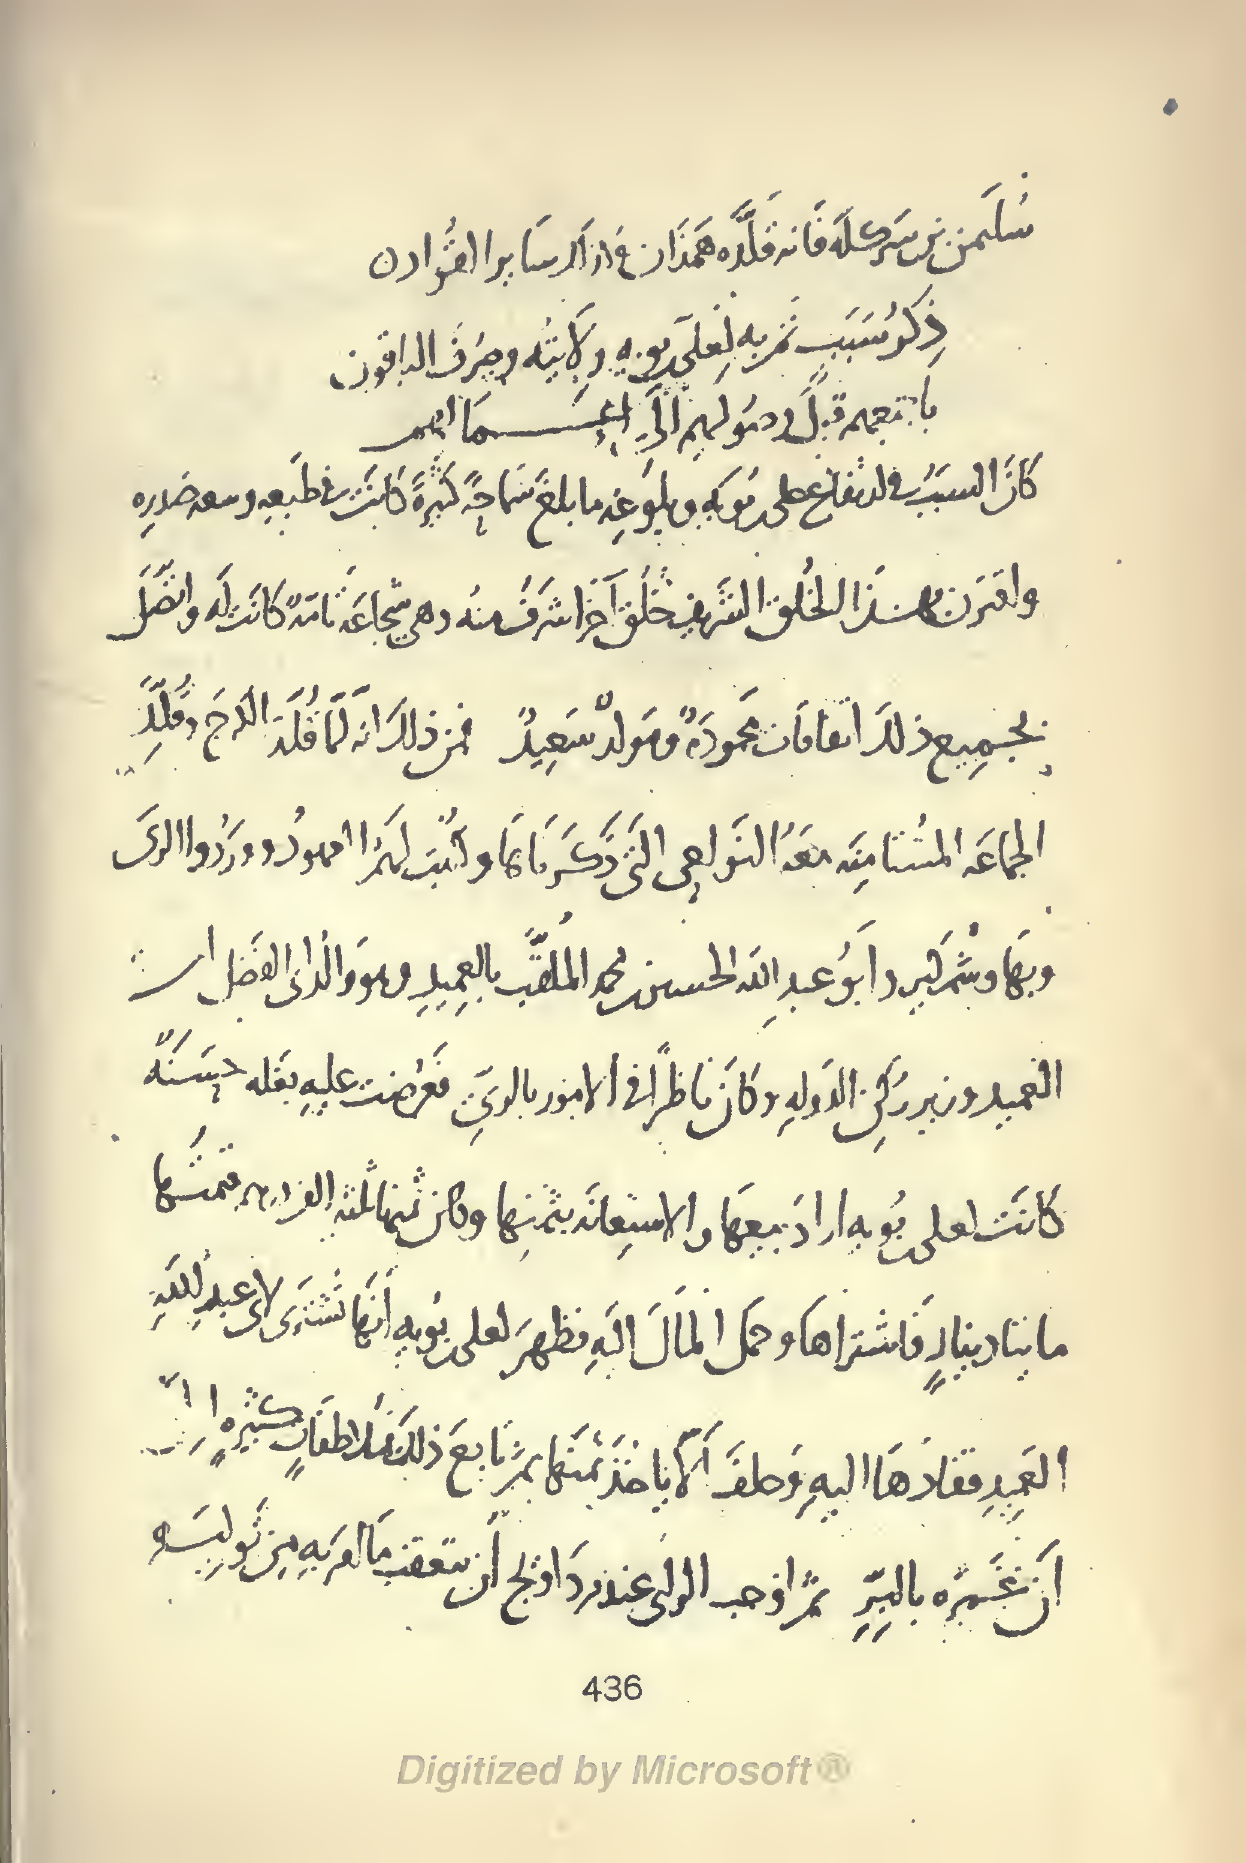 سُليمن بن سَركلَه فَانه قَلَّده هَمَذَان فاراد سَاير القُوادن
ذِكرُ سَبَبِ تم به لِعلى بويه وِلَايتُه وصُرِفَ الباقون
باجمعهم قبلَ وصُولهِم الَى اعمَالهم
كانَ السببُ فى ارتفاع على بن بُوَيهِ وبلوغِه ما بلغَ سَماحَةً كثيرَةً كانت فى طَبعِه وسعه صَدرِه
واقترن بهذا الخُلق الشَريف خُلُق آخر اشرَفُ منه وهى شجَاعَة تامّة كانت لَه واتصَّلَ
بجَميِع ذلكَ اتفاقات محمودَةٌ ومَولدٌ سَعِيدٌ فمن ذلكَ انه لَمّا قُلّد الكرجَ وقُلِّدَ
الجماعَه المُستامِنَه معَهُ النَواحِى التى ذَكَرنَاهَا وكُتبَت لهُم العهودُ ووَرَدُوا الرىَ
وبهَا وشْمكَير وابُو عبدِ الله الحسين بن محمد المُلقَّب بالعمِيدِ وهو وَالدُ ابى الفَضل ابن
العميد وزير رُكنِ الدَولهِ وكَانَ ناظرًا فى الامور بالرىِّ فعُرِضت عليهِ بغله حسَنَةٌ
كانَت لعلى بن بُويه ارادَ بيعَهَا والاستِعانَه بثمَنِها وكان ثمنها ثلثه الف درهم قيمتُها
مايتا دينارٍ فَاشتراهَا وحمَل المَالَ اليَهِ فظهَرَ لعلى بن بُويهِ أنهَا تُشتَرَى لابى عبدِ اللهِ
العَمِيدِ فقادَهَا اليهِ وَحلفَ اَلّا ياخذَ ثمَنَها ثم تَابعَ ذلك بمُلاطفَاتٍ كثيرهٍ الى
اَن غَمَره بالبِرِّ ثم اوجب الراى عِند مردَاويج اَن يتعقب مَا امَر بهِ مِن تَوليَه
436
Digitized by Microsoft®